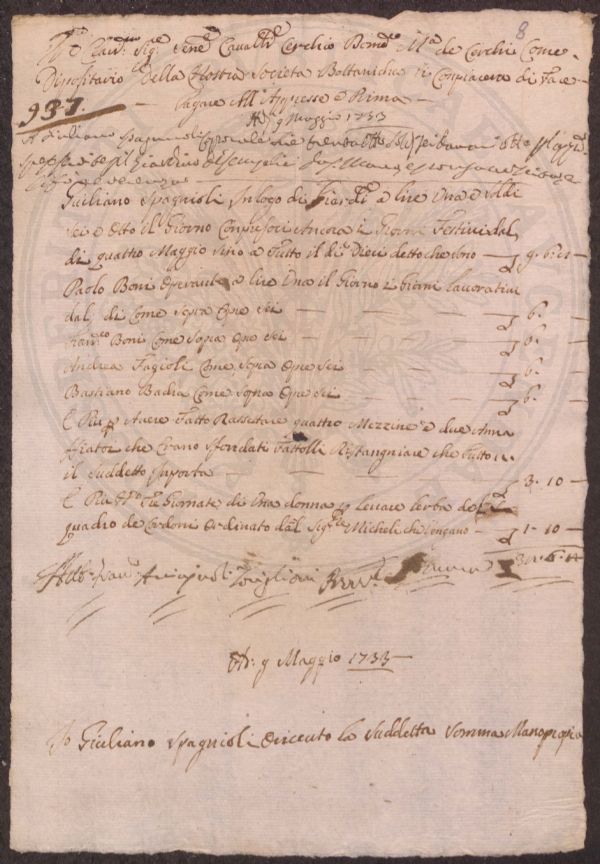 8
Sig.e Sen.e Cavall.e Cerchio Bond.e M.a de Cerchi Come
Dipositario Della Nostra Societa Bottanicha si Conpiacera di Fare
937. Pagare All' Apresso e Rima
Adi 9 Maggio 1733
A Giuliano Spagnoli
spese Giardino de Semplici
Giuliano Spagnioli In logo di Giard.o a lire Una e Soldi
sei e otto il Giorno Conpresoci Ancora i Giorni Festivi dal
di quattro Maggio sino a Tutto il di Dieci detto che sono — 9. 6.
Paolo Boni Operante a lire Una il Giorno i Giorni lavorativi
dal di Come Sopra Opre sei — 6.
Fran.co Boni Come Sopra Opre Sei — 6.
Andrea Fagioli Come Sopra Opre sei — 6.
Bastiano Badia Come Sopra Opre sei — 6.
E Piu p Avere Fatto Rassettare quattro Mezzine e due Anna
ffiatoi che Erano Sfondati Fattolli Ristangniare che Tutto
il Suddetto Inporta — 3. 10 —
E Piu Tre Giornate di Una donna p levare lerba del
quadro de Cardoni Ordinato dal Sig.re Micheli che Vengano — 1. 10 —
Somma
Adi 9 Maggio 1733
Io Giuliano Spagnioli O riceuto la Suddetta Somma Mano propia